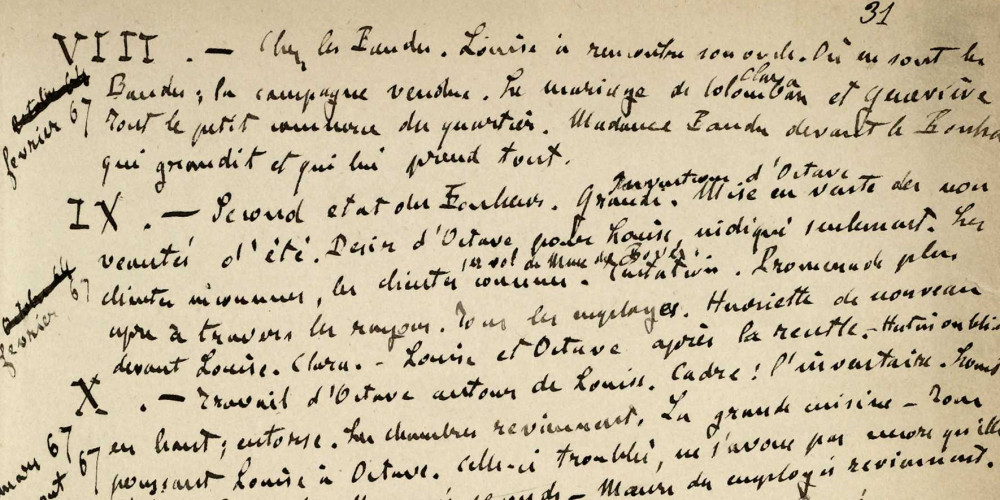 31
VIII. — Chez les Baudu. Louise a rencontré son oncle. Où en sont les
Baudu; la campagne vendue. Le mariage de Colomban et Geneviève
Clara
Tout le petit commerce du quartier. Madame Baudu devant le Bonheur
février 67
qui grandit et qui lui prend tout.
Invention d'Octave
IX. — Second état du Bonheur. Grande. Mise en vente des nou
veautés d'été. Désir d'Octave pour Louise, indiqué seulement. Les
clientes inconnues, les clientes connues. Tentation. Promenade plus
le vol de Mme de Boves
67
février
à travers les rayons. Tous les employés. Henriette de nouveau
devant Louise. Clara. — Louise et Octave après la rentrée. — Hutin oublié
X. — Travail d'Octave autour de Louise. Cadre: l'inventaire. Louise
en haut; entorse. Les chambres reviennent. La grande cuisine — Tous
mars 67
67
poussant Louise à Octave. Celle-ci troublée, ne s'avoue pas encore qu'elle
Mœurs des employés reviennent.